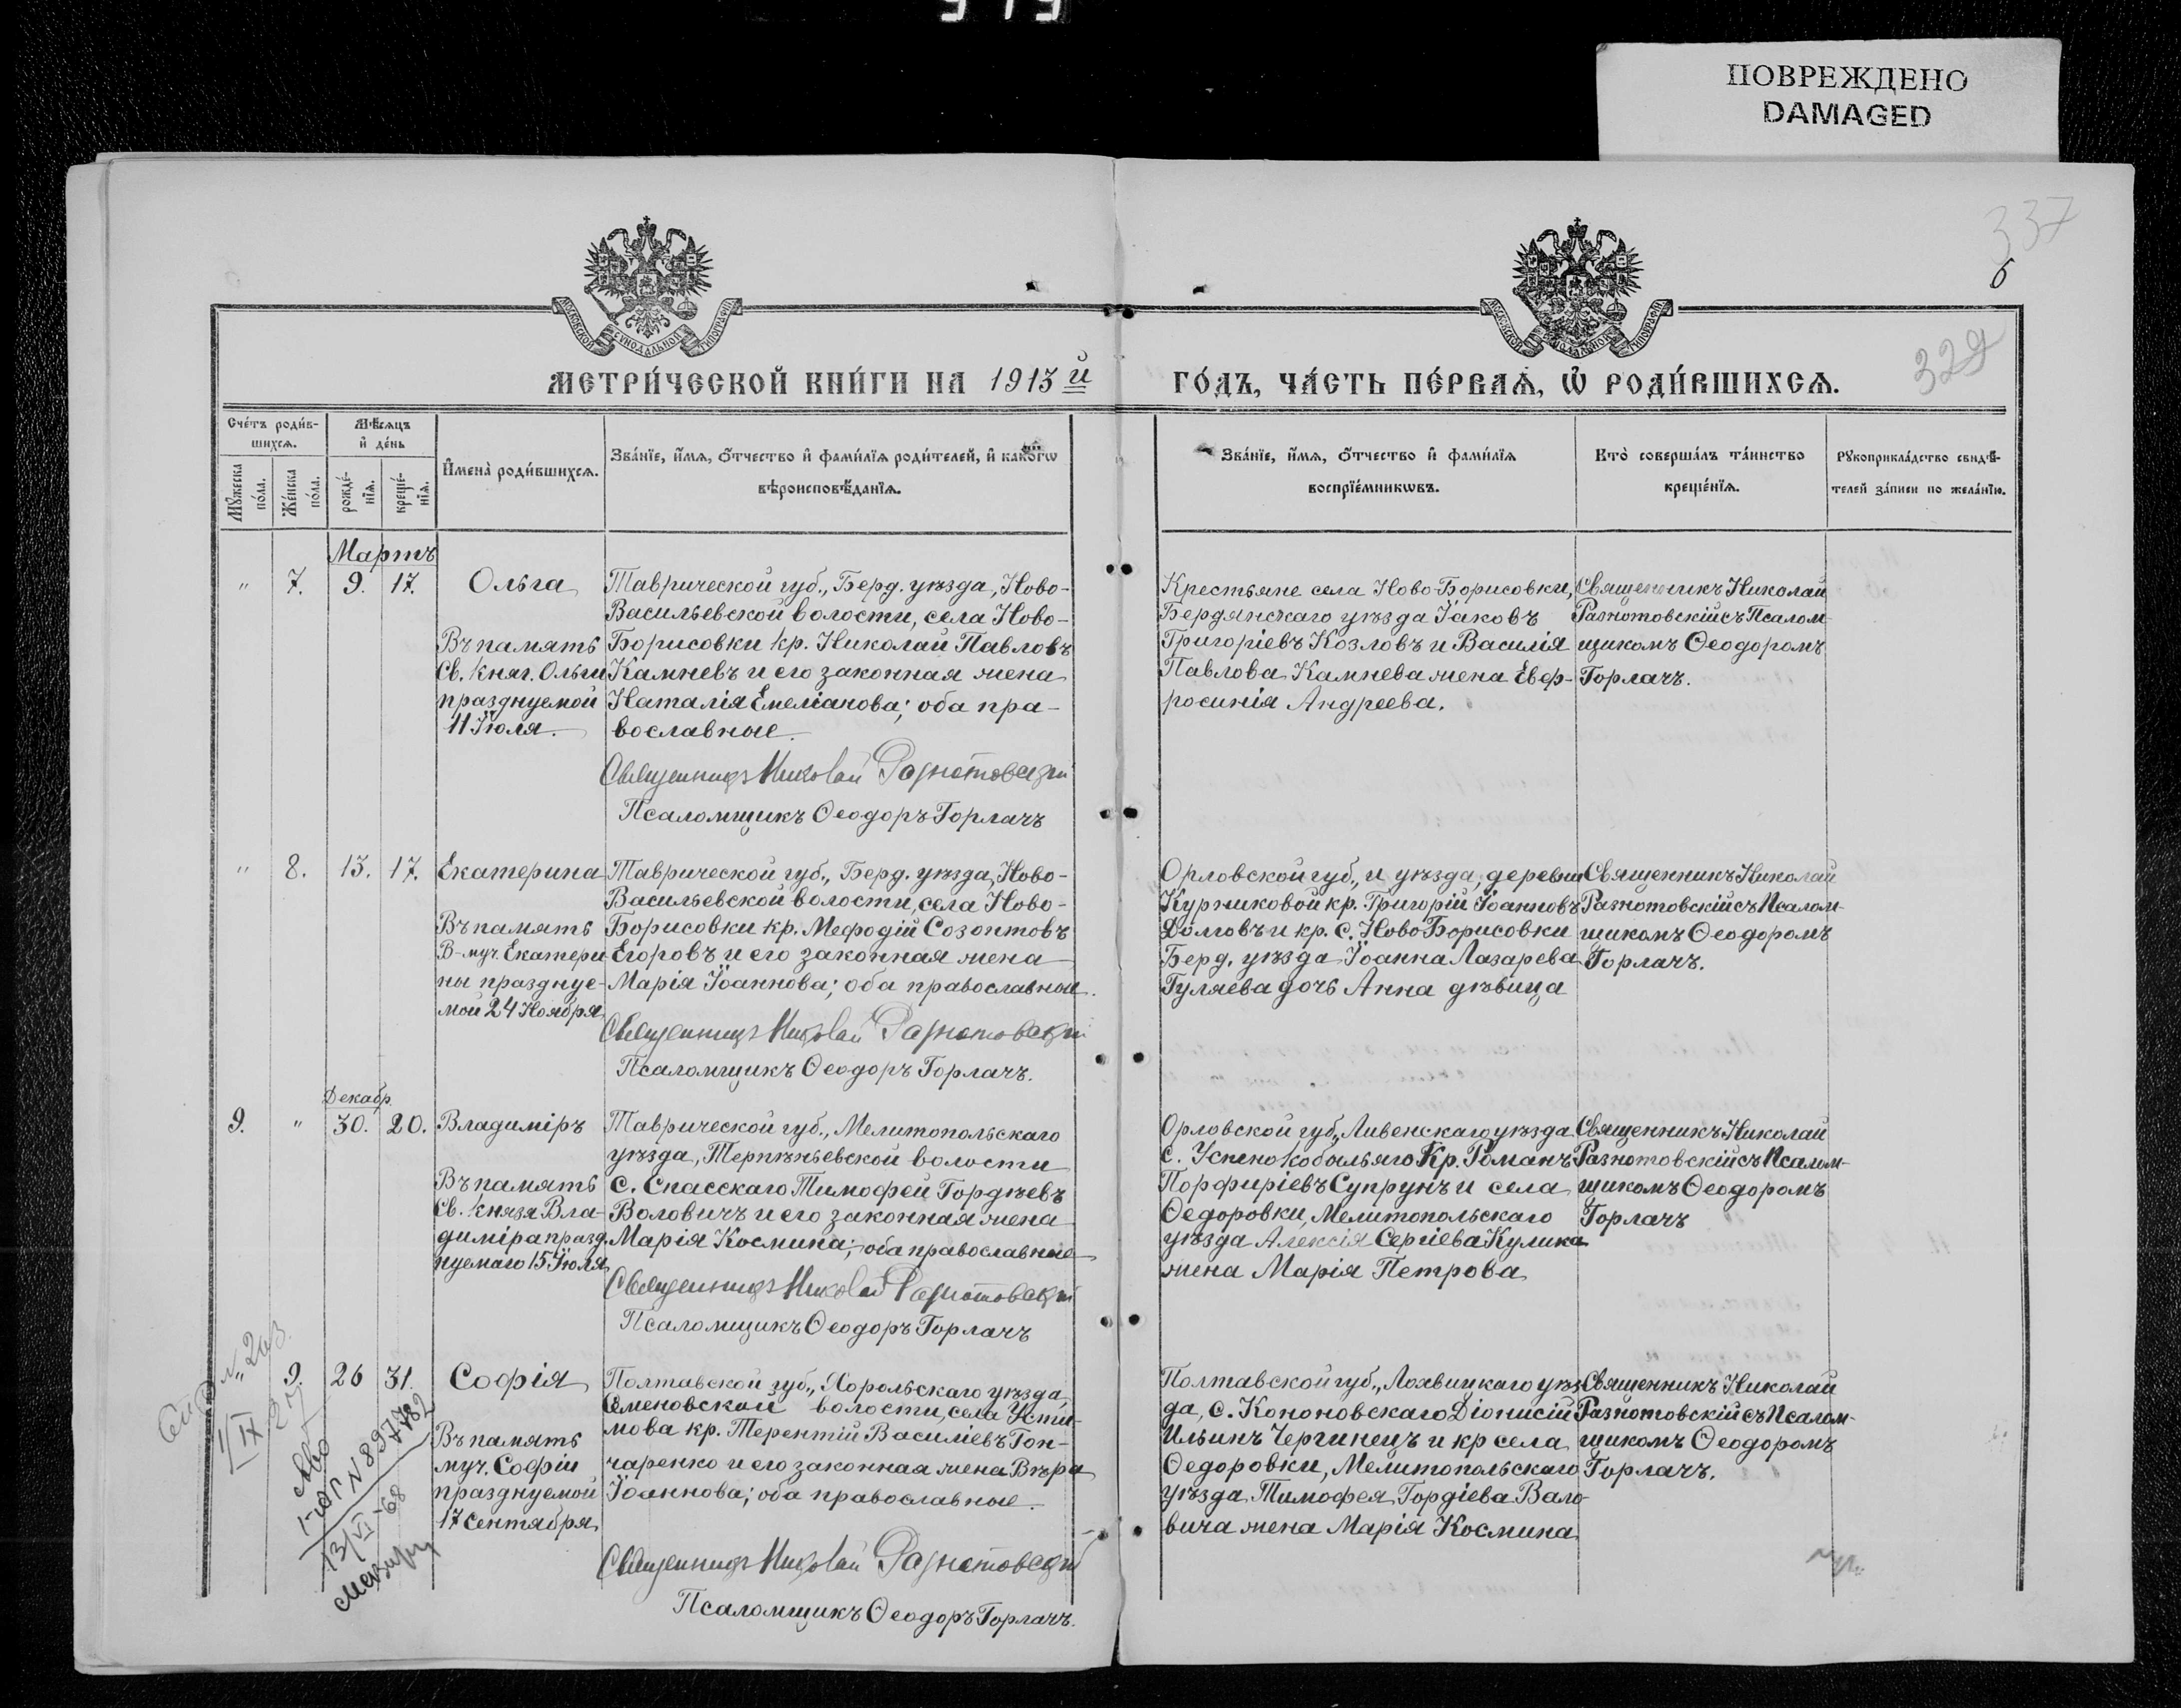 ПОВРЕЖДЕНО
DAMAGED
337
6
329
МЕТРИ́ЧЕСКОЙ КНИ́ГИ НА 1913й
ГО́ДЪ, ЧА́СТЬ ПЕ́РВАѦ, Ѡ҆ РОДИ́ВШИХСѦ.
Сче́тъ роди́в-
шихсѧ.
Мѣ́сѧцъ
и҆ де́нь
Мꙋ́жеска
по́ла.
Же́нска
по́ла.
рожде́-
нїѧ.
креще́-
нїѧ.
И҆мена̀ роди́вшихсѧ.
Зва́нїе, и҆́мѧ, ѻ҆́тчество и҆ фами́лїѧ роди́телей, и҆ како́гѡ
вѣроисповѣ́данїѧ.
Зва́нїе, и҆́мѧ, ѻ҆́тчество и҆ фами́лїѧ
воспрїе́мникѡвъ.
Кто̀ соверша́лъ та́инство
креще́нїѧ.
Рꙋкоприкла́дство свидѣ́-
телей за́писи по жела́нїю.
Мартъ
" 7. 9. 17.
Ольга
Въ память
Св. княг. Ольги
празднуемой
11 Іюля.
Таврической губ., Берд. уѣзда, Ново-
Васильевской волости, села Ново-
Борисовки кр. Николай Павловъ
Камневъ и его законная жена
Наталія Емеліанова; оба пра-
вославные.
Священникъ Николай Разнотовскій
Псаломщикъ Ѳеодоръ Горлачъ
Крестьяне села Ново-Борисовки,
Бердянскаго уѣзда Іаковъ
Григоріевъ Козловъ и Василія
Павлова Камнева жена Евф-
росинія Андреева.
Священникъ Николай
Разнотовскій съ Псалом-
щикомъ Ѳеодоромъ
Горлачъ.
" 8. 13. 17.
Екатерина
Въ память
В-муч. Екатери
ны празднуе-
мой 24 Ноября
Таврической губ., Берд. уѣзда, Ново-
Васильевской волости, села Ново-
Борисовки кр. Мефодій Созонтовъ
Егоровъ и его законная жена
Марія Іоаннова; оба православные.
Священникъ Николай Разнотовскій
Псаломщикъ Ѳеодоръ Горлачъ.
Орловской губ., и уѣзда, деревни
Курниковой кр. Григорій Іоанновъ
Долговъ и кр. с. Ново Борисовки
Берд. уѣзда Іоанна Лазарева
Гуляева дочь Анна дѣвица
Священникъ Николай
Разнотовскій съ Псалом-
щикомъ Ѳеодоромъ
Горлачъ.
Декабр.
9. " 30. 20.
Владиміръ
Въ память
Св. князя Вла-
диміра празд.
нуемаго 15 Іюля
Таврической губ., Мелитопольскаго
уѣзда, Терпѣньевской волости
с. Спасскаго Тимофей Гордѣевъ
Воловичъ и его законная жена
Марія Космина; оба православные
Священникъ Николай Разнотовскій
Псаломщикъ Ѳеодоръ Горлачъ
Орловской губ., Ливенскаго уѣзда
с. Успено Кобыльяго Кр. Романъ
Порфиріевъ Супрунъ и села
Ѳедоровки, Мелитопольскаго
уѣзда Алексія Сергіева Кулика
жена Марія Петрова
Священникъ Николай
Разнотовскій съ Псалом-
щикомъ Ѳеодоромъ
Горлачъ
" 9. 26 31.
Софія
Въ память
муч. Софіи
празднуемой
17 Сентября
Полтавской губ., Хорольскаго уѣзда
Семеновской волости, села Усти-
мова кр. Терентій Василіевъ Гон-
чаренко и его законная жена Вѣра
Іоаннова; оба православные.
Священникъ Николай Разнотовскій
Псаломщикъ Ѳеодоръ Горлачъ.
Полтавской губ., Лохвицкаго уѣз
да, с. Кононовскаго Діонисій
Ильинъ Чергинецъ и кр села
Ѳедоровки, Мелитопольскаго
уѣзда Тимофея Гордіева Вало-
вича жена Марія Космина
Священникъ Николай
Разнотовскій съ Псалом-
щикомъ Ѳеодоромъ
Горлачъ.
13/VI-68